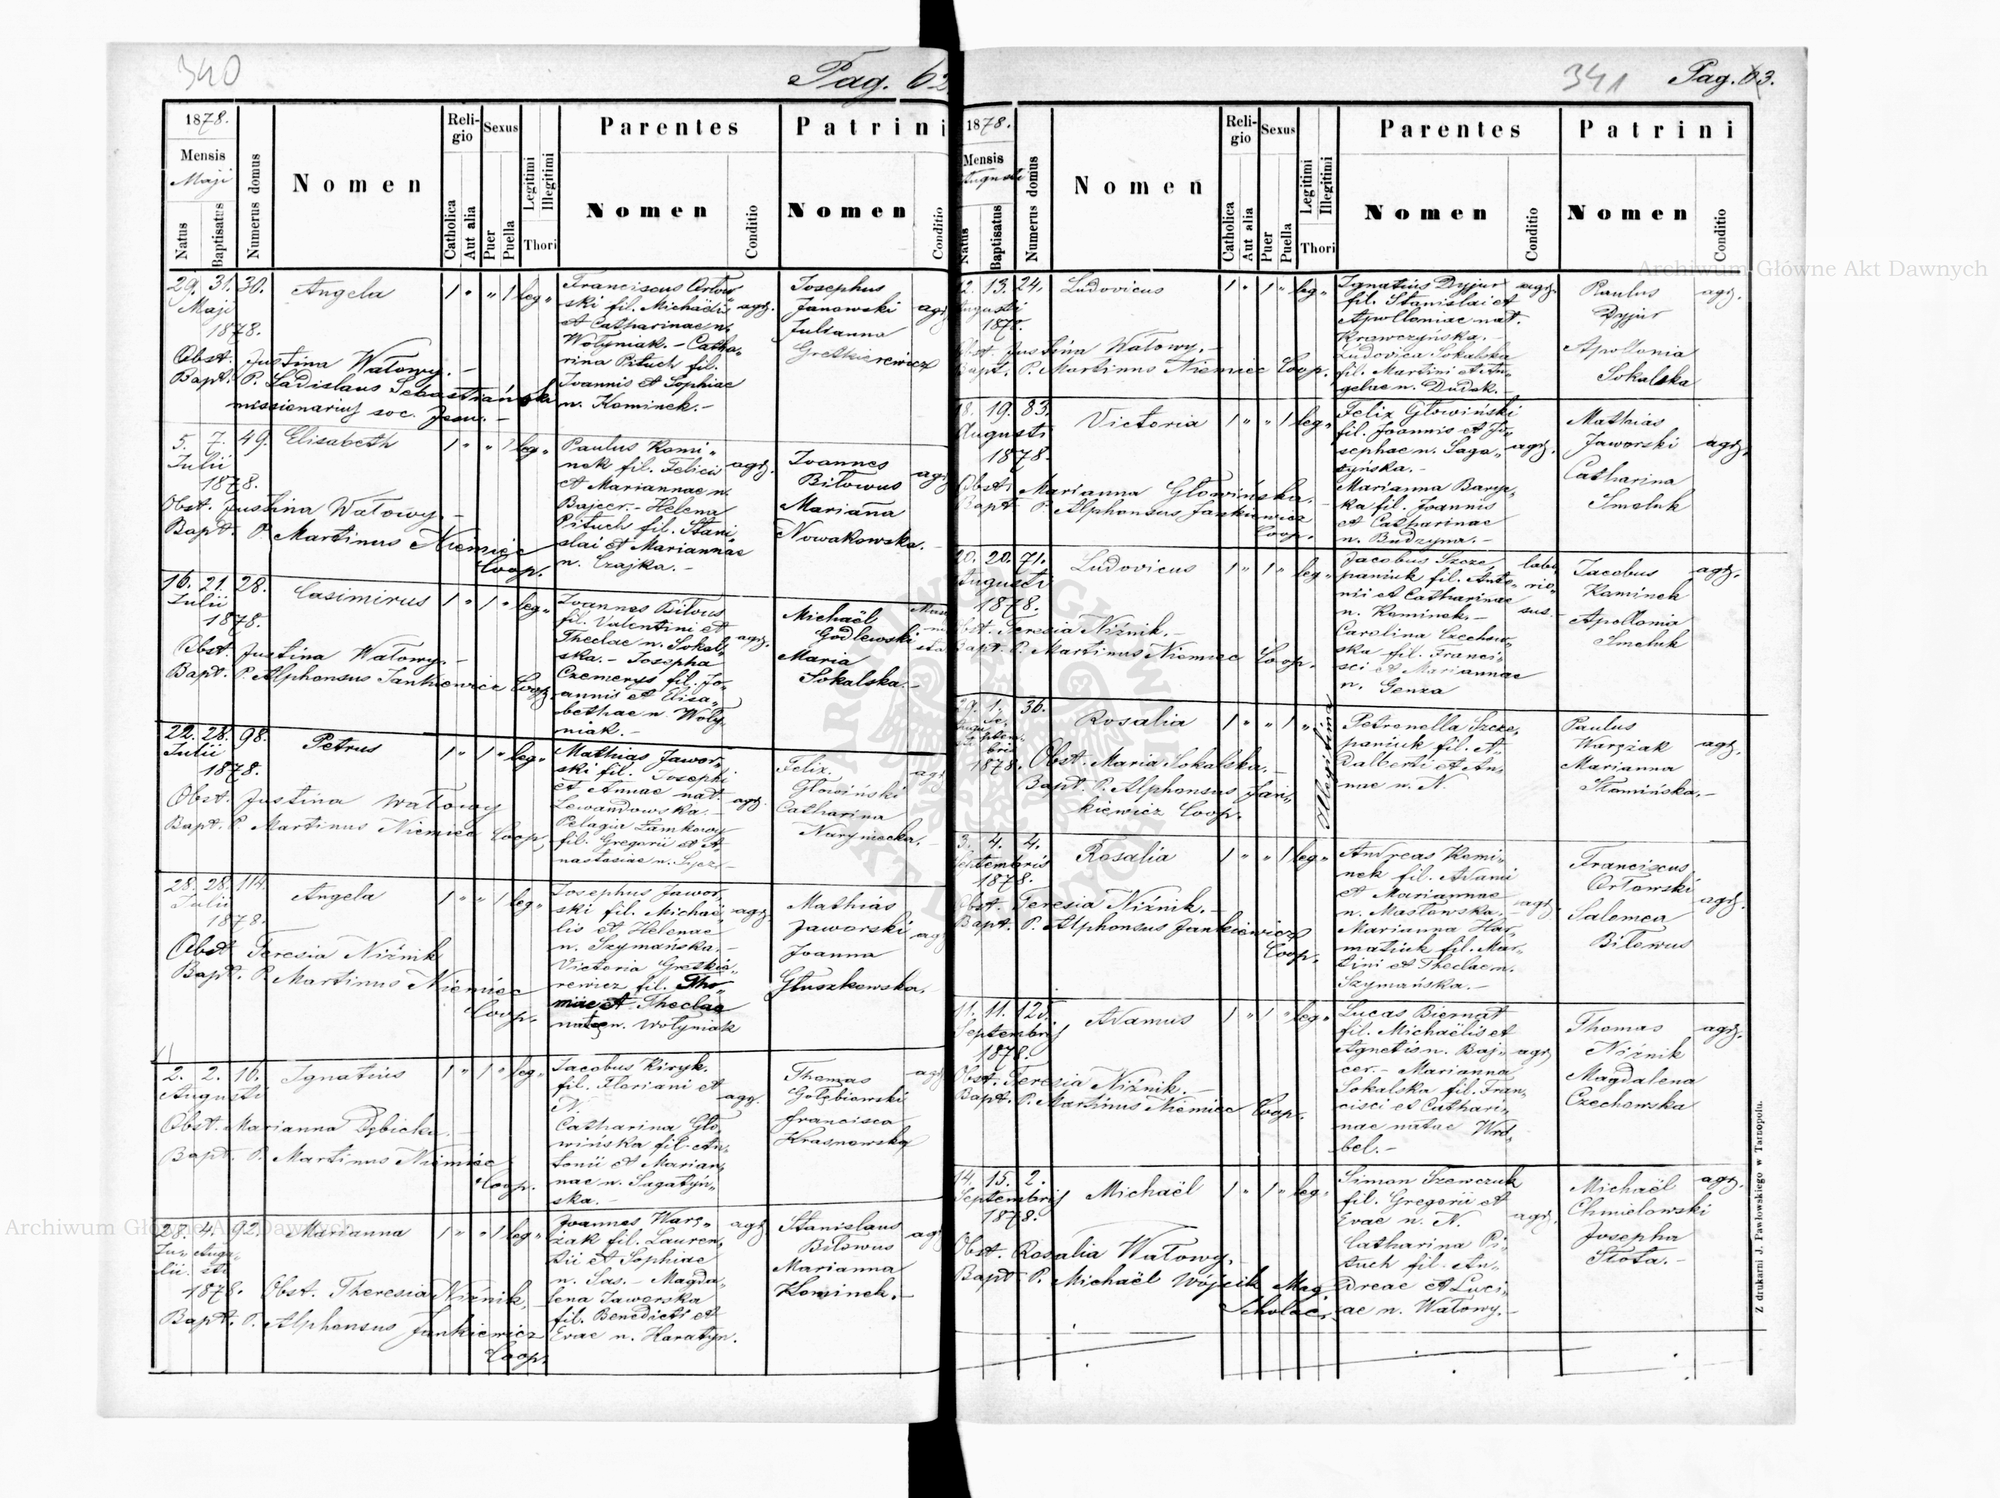 340
Pag. 62
1878.
Mensis
Maji
Natus
Baptisatus
Numerus domus
Nomen
Religio
Catholica
Aut alia
Sexus
Puer
Puella
Legitimi
Illegitimi
Thori
Parentes
Nomen
Conditio
Patrini
Nomen
Conditio
29. 31. 30. Angela 1 " " 1 leg "
Maji
1878.
Obst. Justina Wałowy. –
Bapt. P. Ladislaus Sebastiański
missionarius soc. Jesu. –
Franciscus Orłow
ski fil. Michaëlis
et Catharinae n.
Wołyniak. – Catha
rina Pituch fil.
Joannis et Sophiae
n. Kominek. –
agr.
Josephus
Janowski
Julianna
Greskierewicz
agr.
5. 7. 49. Elisabeth 1 " " 1 leg "
Julii
1878.
Obst. Justina Wałowy. –
Bapt. P. Martinus Niemiec
Coop.
Paulus Komi
nek fil. Felicis
et Mariannae n.
Bajcer. – Helena
Pituch fil. Stani
slai et Mariannae
n. Czajka. –
agr.
Joannes
Biłowus
Marianna
Nowakowska. –
agr.
16. 21. 28. Casimirus 1 " 1 " leg "
Julii
1878.
Obst. Justina Wałowy. –
Bapt. P. Alphonsus Jankiewicz Coop.
Joannes Biłous
fil. Valentini et
Theclae n. Sokal
ska. – Josepha
Czemerys fil. Jo
annis et Elisa
bethae n. Woły
niak. –
agr.
Michaël
Godlewski
Maria
Sokalska. –
22. 28. 98. Petrus 1 " 1 " leg "
Julii
1878.
Obst. Justina Wałowy
Bapt. P. Martinus Niemiec Coop.
Mathias Jawor
ski fil. Josephi
et Annae nat.
Lewandowska. –
Pelagia Zamkowy
fil. Gregorii et A
nastasiae n.
agr.
Felix
Głowiński
Catharina
agr.
28. 28. 114. Angela 1 " " 1 leg "
Julii
1878.
Obst. Teresia Niźnik
Bapt. P. Martinus Niemiec
Coop.
Josephus Jawor
ski fil. Michaë
lis et Helenae
n. Szymańska. –
Victoria Greskie
rewicz fil. Tho
mae et Theclae
natae n. Wołyniak
agr.
Mathias
Jaworski
Joanna
Głuszkowska.
agr.
2. 2. 16. Ignatius 1 " 1 " leg "
Augusti
Obst. Marianna Dębicka. –
Bapt. P. Martinus Niemiec
Coop.
Jacobus Kiryk
fil. Floriani et
N.
Catharina Gło
wińska fil. An
tonii et Marian
nae n. Sagatyń
ska. –
agr.
Thomas
Gołębiowski
Francisca
Krasnowska
agr.
28. 4. 92. Marianna 1 " " 1 leg "
Ju Augu
lii. sti
1878. Obst. Theresia Niźnik. –
Bapt. P. Alphonsus Jankiewicz
Coop.
Joannes Warz
żak fil. Lauren
tii et Sophiae
n. Sas. – Magda
lena Jaworska
fil. Benedicti et
Evae n. Haratyn.
agr.
Stanislaus
Biłowus
Marianna
Kominek. –
agr.
341
Pag. 63.
1878.
Mensis
Augusti
Natus
Baptisatus
Numerus domus
Nomen
Religio
Catholica
Aut alia
Sexus
Puer
Puella
Legitimi
Illegitimi
Thori
Parentes
Nomen
Conditio
Patrini
Nomen
Conditio
12. 13. 24. Ludovicus 1 " 1 " leg "
Augusti
1878.
Obst. Justina Wałowy. –
Bapt. P. Martinus Niemiec Coop.
Ignatius Dyjur
fil. Stanislai et
Apolloniae nat.
Krawczyńska. –
Ludovica Sokalska
fil. Martini et An
gelae n. Dudek. –
agr.
Paulus
Dyjur
Apollonia
Sokalska
agr.
18. 19. 83. Victoria 1 " " 1 leg "
Augusti
1878.
Obst. Marianna Głowińska. –
Bapt. P. Alphonsus Jankiewicz
Coop.
Felix Głowiński
fil. Joannis et Jo
sephae n. Saga
tyńska. –
Marianna Bary
ka fil. Joannis
et Catharinae
n. Budzyna. –
agr.
Mathias
Jaworski
Catharina
Smoluk
agr.
20. 20. 71. Ludovicus 1 " 1 " leg "
Augusti
1878.
Obst. Teresia Niźnik. –
Bapt. P. Martinus Niemiec Coop.
Jacobus Szcze
paniuk fil. Anto
nii et Catharinae
n. Kominek. –
Carolina Czechow
ska fil. Franci
sci et Mariannae
n. Genza
labo
rio
sus. –
Jacobus
Kominek
Apollonia
Smoluk
agr.
29. 1. 36. Rosalia 1 " " 1 "
1878. Obst. Maria Sokalska. –
Bapt. P. Alphonsus Jan
kiewicz Coop.
Illegitima
Petronella Szcze
paniuk fil. A
dalberti et An
nae n. N.
Paulus
Warzżak
Marianna
Słomińska. –
agr.
3. 4. 4. Rosalia 1 " " 1 leg "
Septembris
1878.
Obst. Teresia Niźnik. –
Bapt. P. Alphonsus Jankiewicz
Coop.
Andreas Komi
nek fil. Adami
et Mariannae
n. Masłowska. –
Marianna Har
matiuk fil. Mar
tini et Theclae n.
Szymańska. –
agr.
Franciscus
Orłowski
Salomea
Biłowus
agr.
11. 11. 125. Adamus 1 " 1 " leg "
Septembris
1878.
Obst. Teresia Niźnik. –
Bapt. P. Martinus Niemiec Coop.
Lucas Biernat
fil. Michaëlis et
Agnetis n. Baj
cer. – Marianna
Sokalska fil. Fran
cisci et Cathari
nae natae Wró
bel. –
agr.
Thomas
Niźnik
Magdalena
Czechowska
agr.
14. 15. 2. Michaël 1 " 1 " leg "
Septembris
1878.
Obst. Rosalia Wałowy.
Bapt. P. Michaël Wójcik Mag.
Scholae.
Simon Szewczuk
fil. Gregorii et
Evae n. N.
Catharina Pi
tuch fil. An
dreae et Luci
ae n. Wałowy. –
agr.
Michaël
Chmielowski
Josepha
Słota. –
agr.
Z drukarni J. Pawłowskiego w Tarnopolu.
Archiwum Główne Akt Dawnych
Archiwum Główne Akt Dawnych
ARCHIWUM GŁÓWNE AKT DAWNYCH